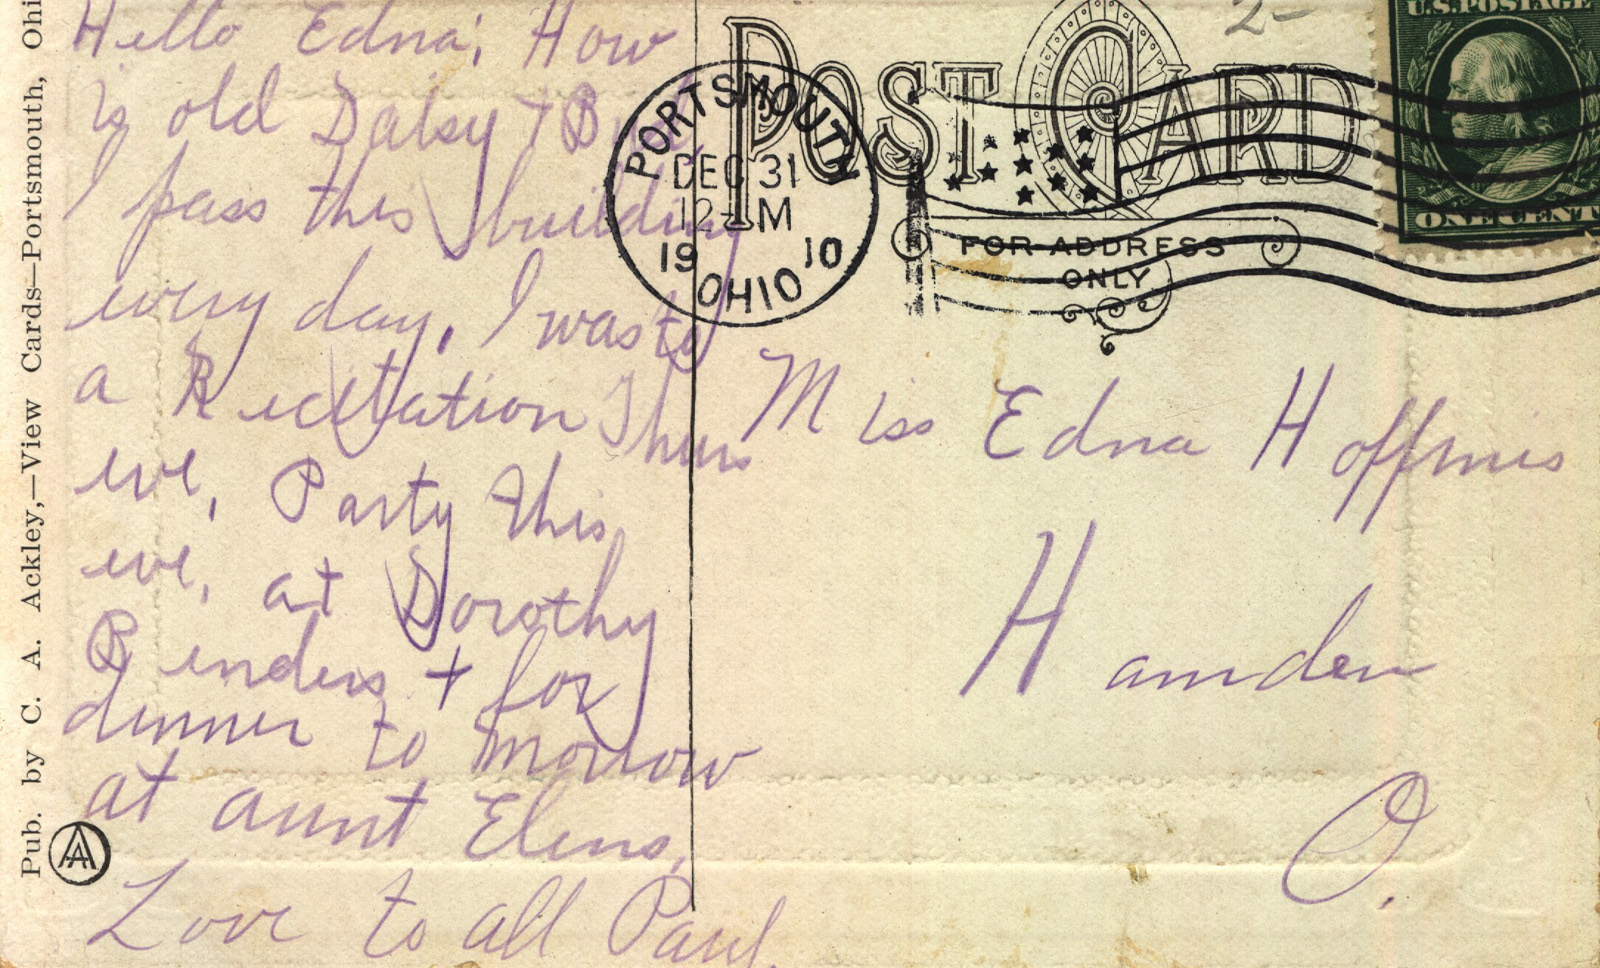 Hello Edna; How
is old Daisy +
I pass this building
every day. I was to
a Recitation Thurs
eve, Party this
eve, at Dorothy
Benders + for
dinner to morrow
at aunt Elens,
Love to all Paul
Pub. by C. A. Ackley,—View Cards—Portsmouth, Ohi
POST CARD
FOR ADDRESS
ONLY
PORTSMOUTH
DEC 31
12- M
19 10
OHIO
2-
U.S. POSTAGE
ONE CENT
Miss Edna
Hamden
O.
AA